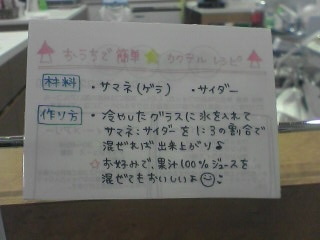 おうちで簡単☆カクテルレシピ
材料 ・サマネ(ゲラ) ・サイダー
作り方 ・冷やしたグラスに氷を入れて
サマネ:サイダーを1:3の割合で
混ぜれば出来上がり♪
☆お好みで、果汁100%ジュースを
混ぜてもおいしいよ☺